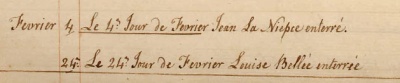 Fevrier 4 Le 4e. Jour de Fevrier Jean La Niepce enterré.
24 Le 24e. Jour de Fevrier Louise Bellée enterrée